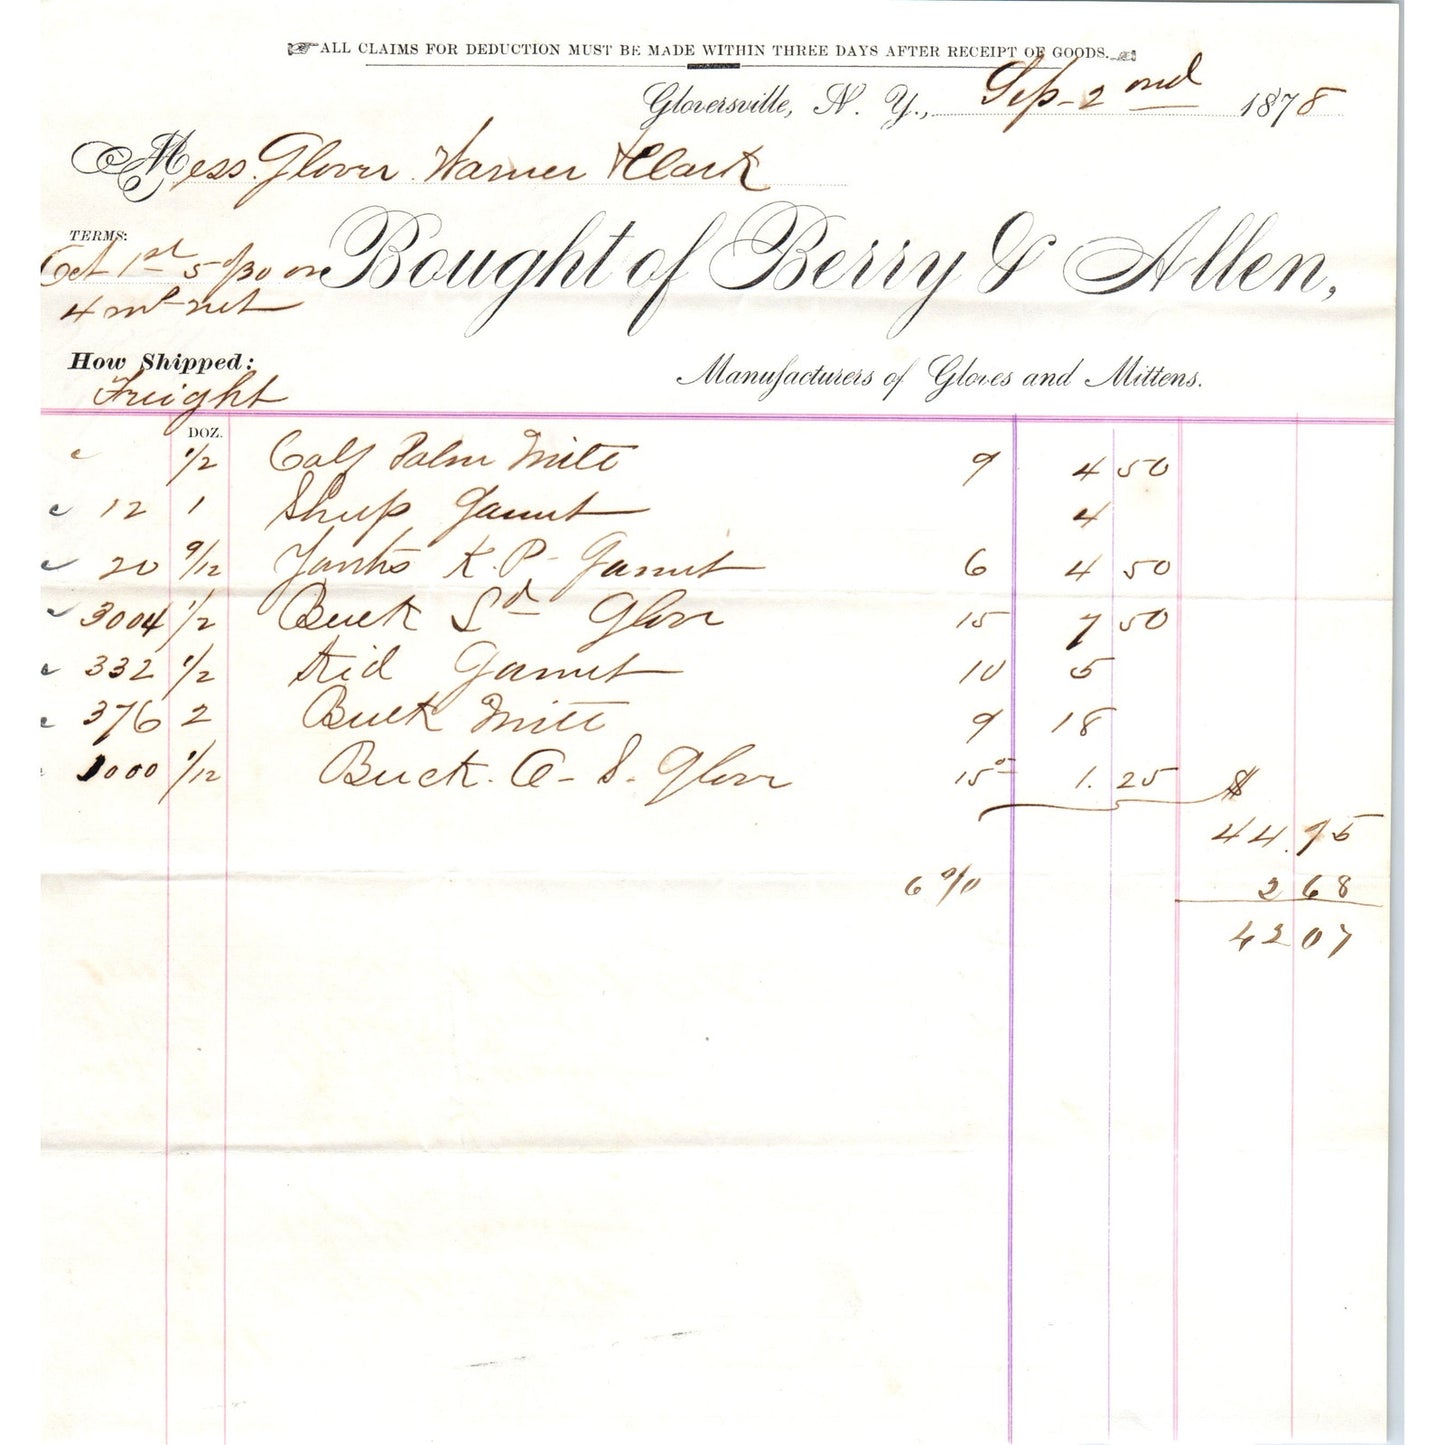 ALL CLAIMS FOR DEDUCTION MUST BE MADE WITHIN THREE DAYS AFTER RECEIPT OF GOODS.
Gloversville, N. Y., Sep 2nd 1878
Mess. Glover Warner & Clark
TERMS:
Oct 1st 5%30 or
4 mo net
Bought of Berry & Allen,
How Shipped:
Freight
Manufacturers of Gloves and Mittens.
DOZ.
1/2 Calf Palm Mitt 9 4 50
12 1 Sheep Gaunt 4
20 9/12 K.P. Gaunt 6 4 50
3004 1/2 Buck Sd Glove 15 7 50
332 1/2 Kid Gaunt 10 5
376 2 Buck Mitt 9 18
1000 1/12 Buck. O-S. Glove 15 1.25 $
44.75
6% 2 68
42 07